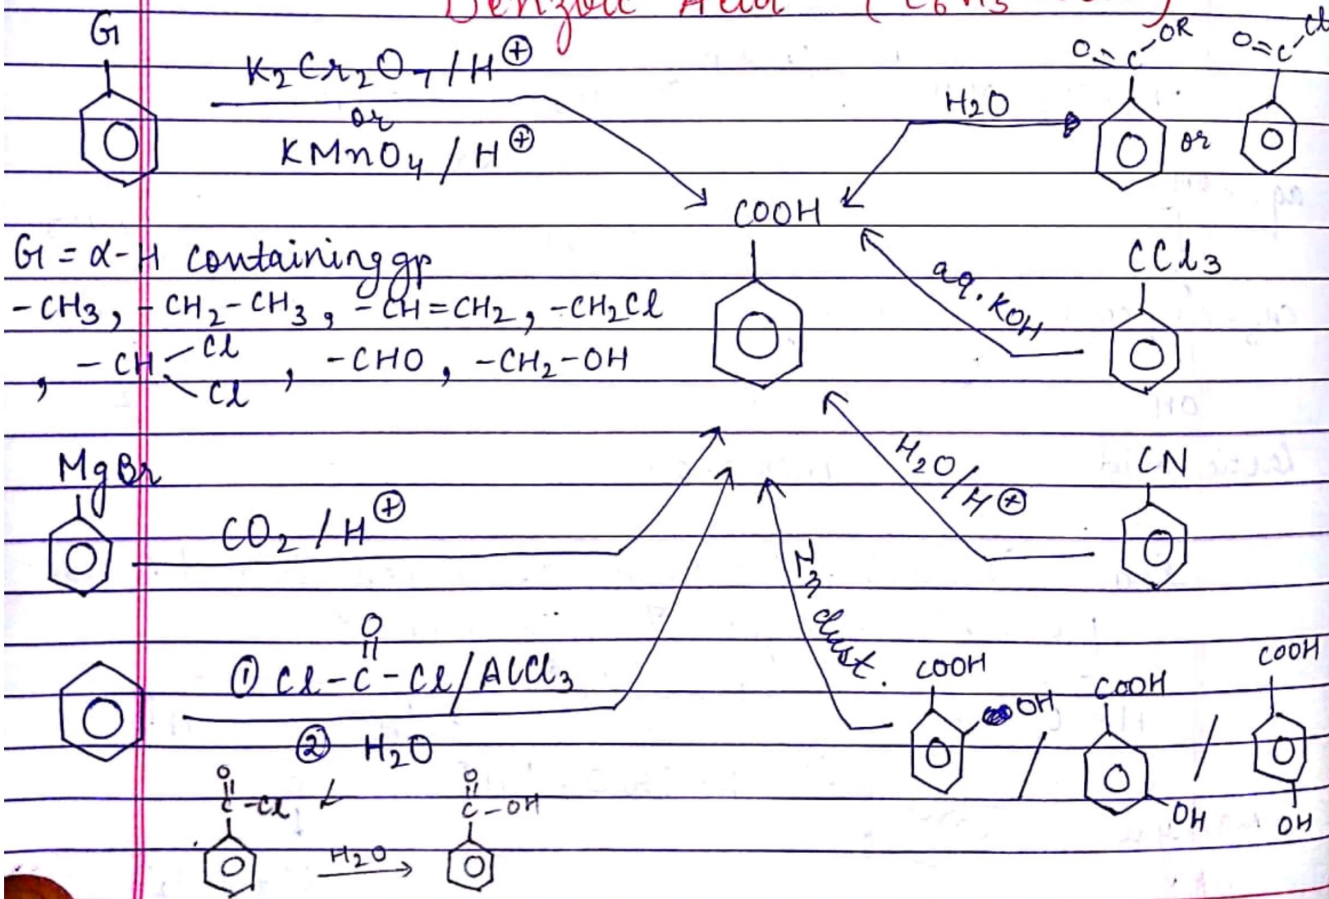 Benzoic Acid
G
K2Cr2O7/H⊕
or
KMnO4/H⊕
H2O
O=C-OR
or
O=C-Cl
COOH
G = α-H containing gp
-CH3, -CH2-CH3, -CH=CH2, -CH2Cl
, -CH Cl Cl, -CHO, -CH2-OH
aq. KOH
CCl3
MgBr
CO2/H⊕
H2O/H⊕
CN
① Cl-C-Cl/AlCl3
O
② H2O
dust.
COOH
OH
/
COOH
OH
/
COOH
OH
O
C-Cl
H2O
O
C-OH